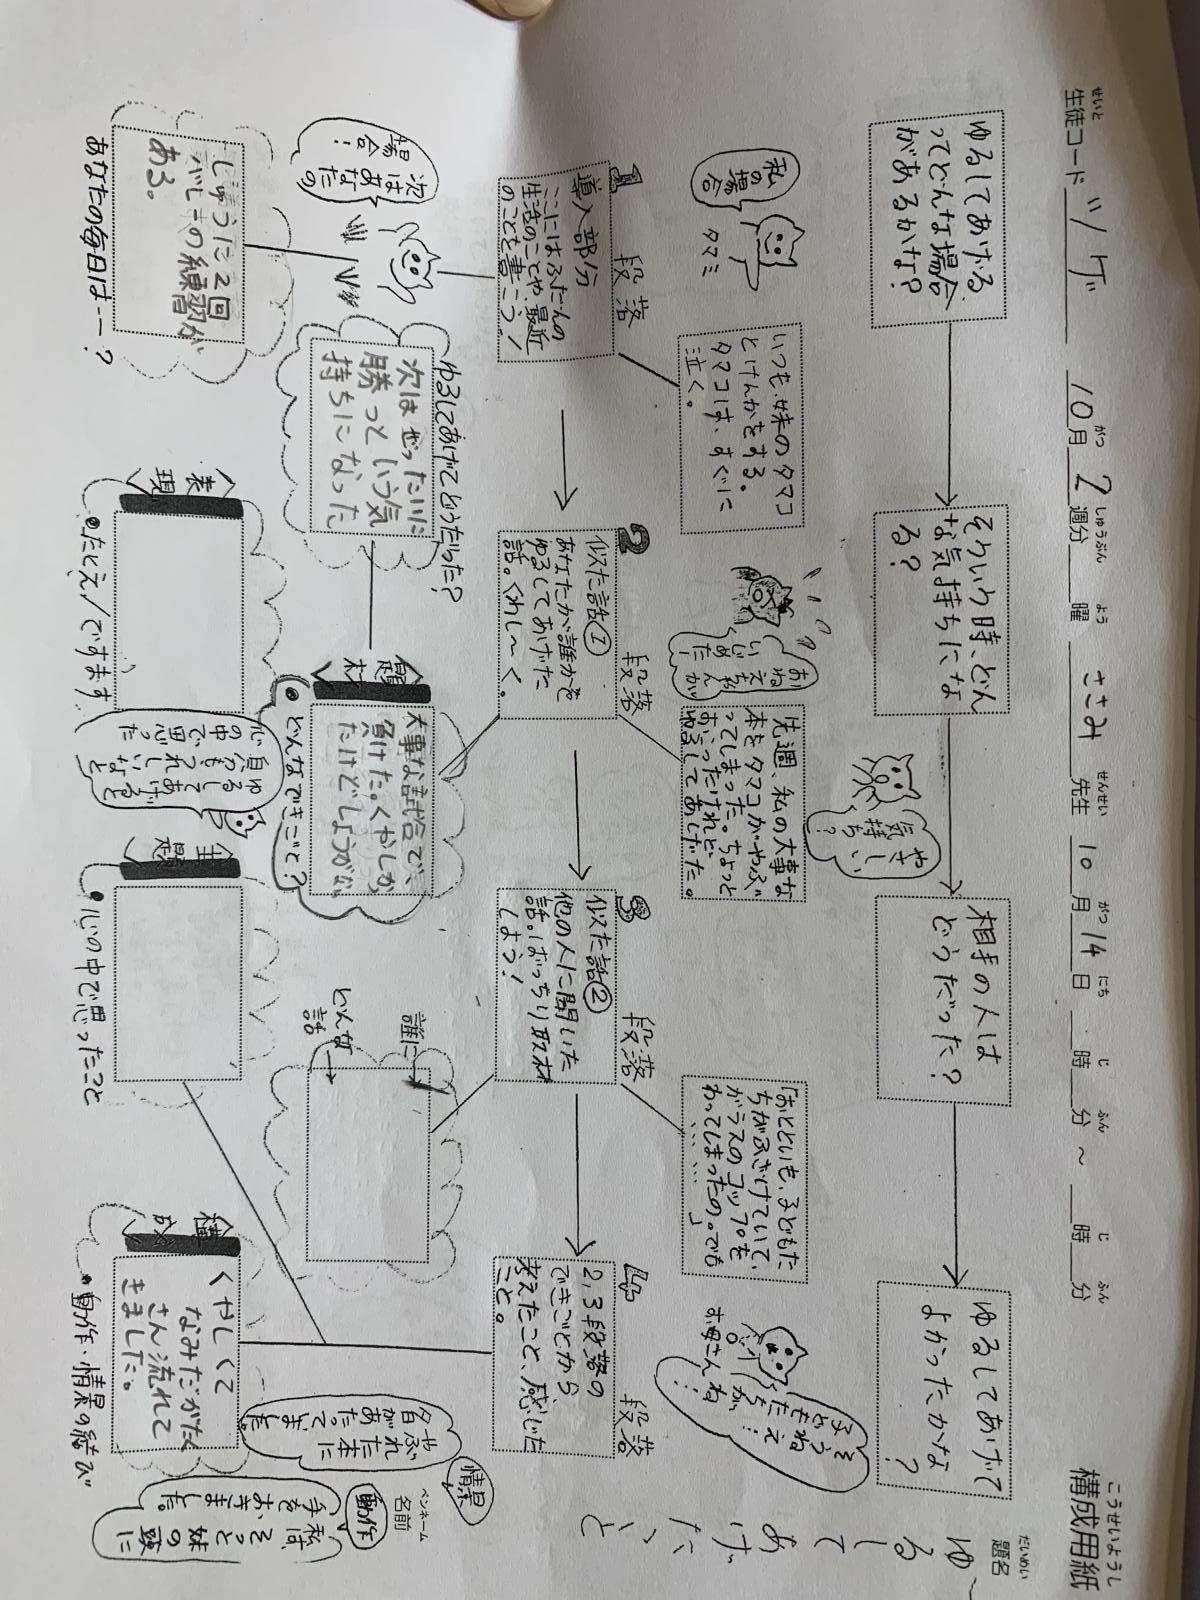 こうせいようし
構成用紙
せいと
生徒コード ツゲ
がつ しゅうぶん よう せんせい がつ にち じ ふん じ ふん
10月 2週分 曜 ささみ 先生 10月14日 時 分 ~ 時 分
だいめい
題名
ゆるしてあげたいこと
ゆるしてあげる
ってどんな場合
があるかな?
そういう時、どん
な気持ちにな
る?
相手の人は
どうだった?
ゆるしてあげて
よかったかな
?
私の
場合
タマミ
いつも、妹のタマコ
とけんかをする。
タマコは、すぐに
泣く。
おねえちゃんが
私を
いじめたー
先週、私の大事な
本をタマコがやぶ
ってしまった。ちょっと
おこったけれど、
ゆるしてあげた。
やさしい
気持ち?
「おとといも、子どもた
ちがふざけていて、
ガラスのコップを
わってしまったの。でも
……………」
そうねえ…
子どもたち
が、
お母さんね…
1 段落
導入部分
ここにはふだんの
生活のことや、最近
のことを書こう!
2 段落
似た話①
あなたが誰かを
ゆるしてあげた
話。くわし〜く。
3 段落
似た話②
他の人に聞いた
話。ばっちり取材
しよう!
4 段落
2,3段落の
できごとから
考えたこと、感じた
こと。
次はあなたの
場合!
ゆるしてあげてどうだった?
次はぜったいに
勝っという気
持ちになった
題材
大事な試合で、
負けた。くやしか
たけどしょうがない
どんなできごと?
誰に→
どんな
話→
情景
やぶれた本に
名があたって
ました。
ペンネーム
名前
動作
私は、そっと妹の頭に
手をおきました。
一しゅうた2回
バレーの練習が
ある。
あなたの毎日は…?
表現
・たとえ/ですます
ゆるしてあげると
自分もうれしいなと
心の中で思った
主題
・心の中で思ったこと
構成
くやしくて
なみだがたく
さん流れて
きました。
・動作・情景の結び